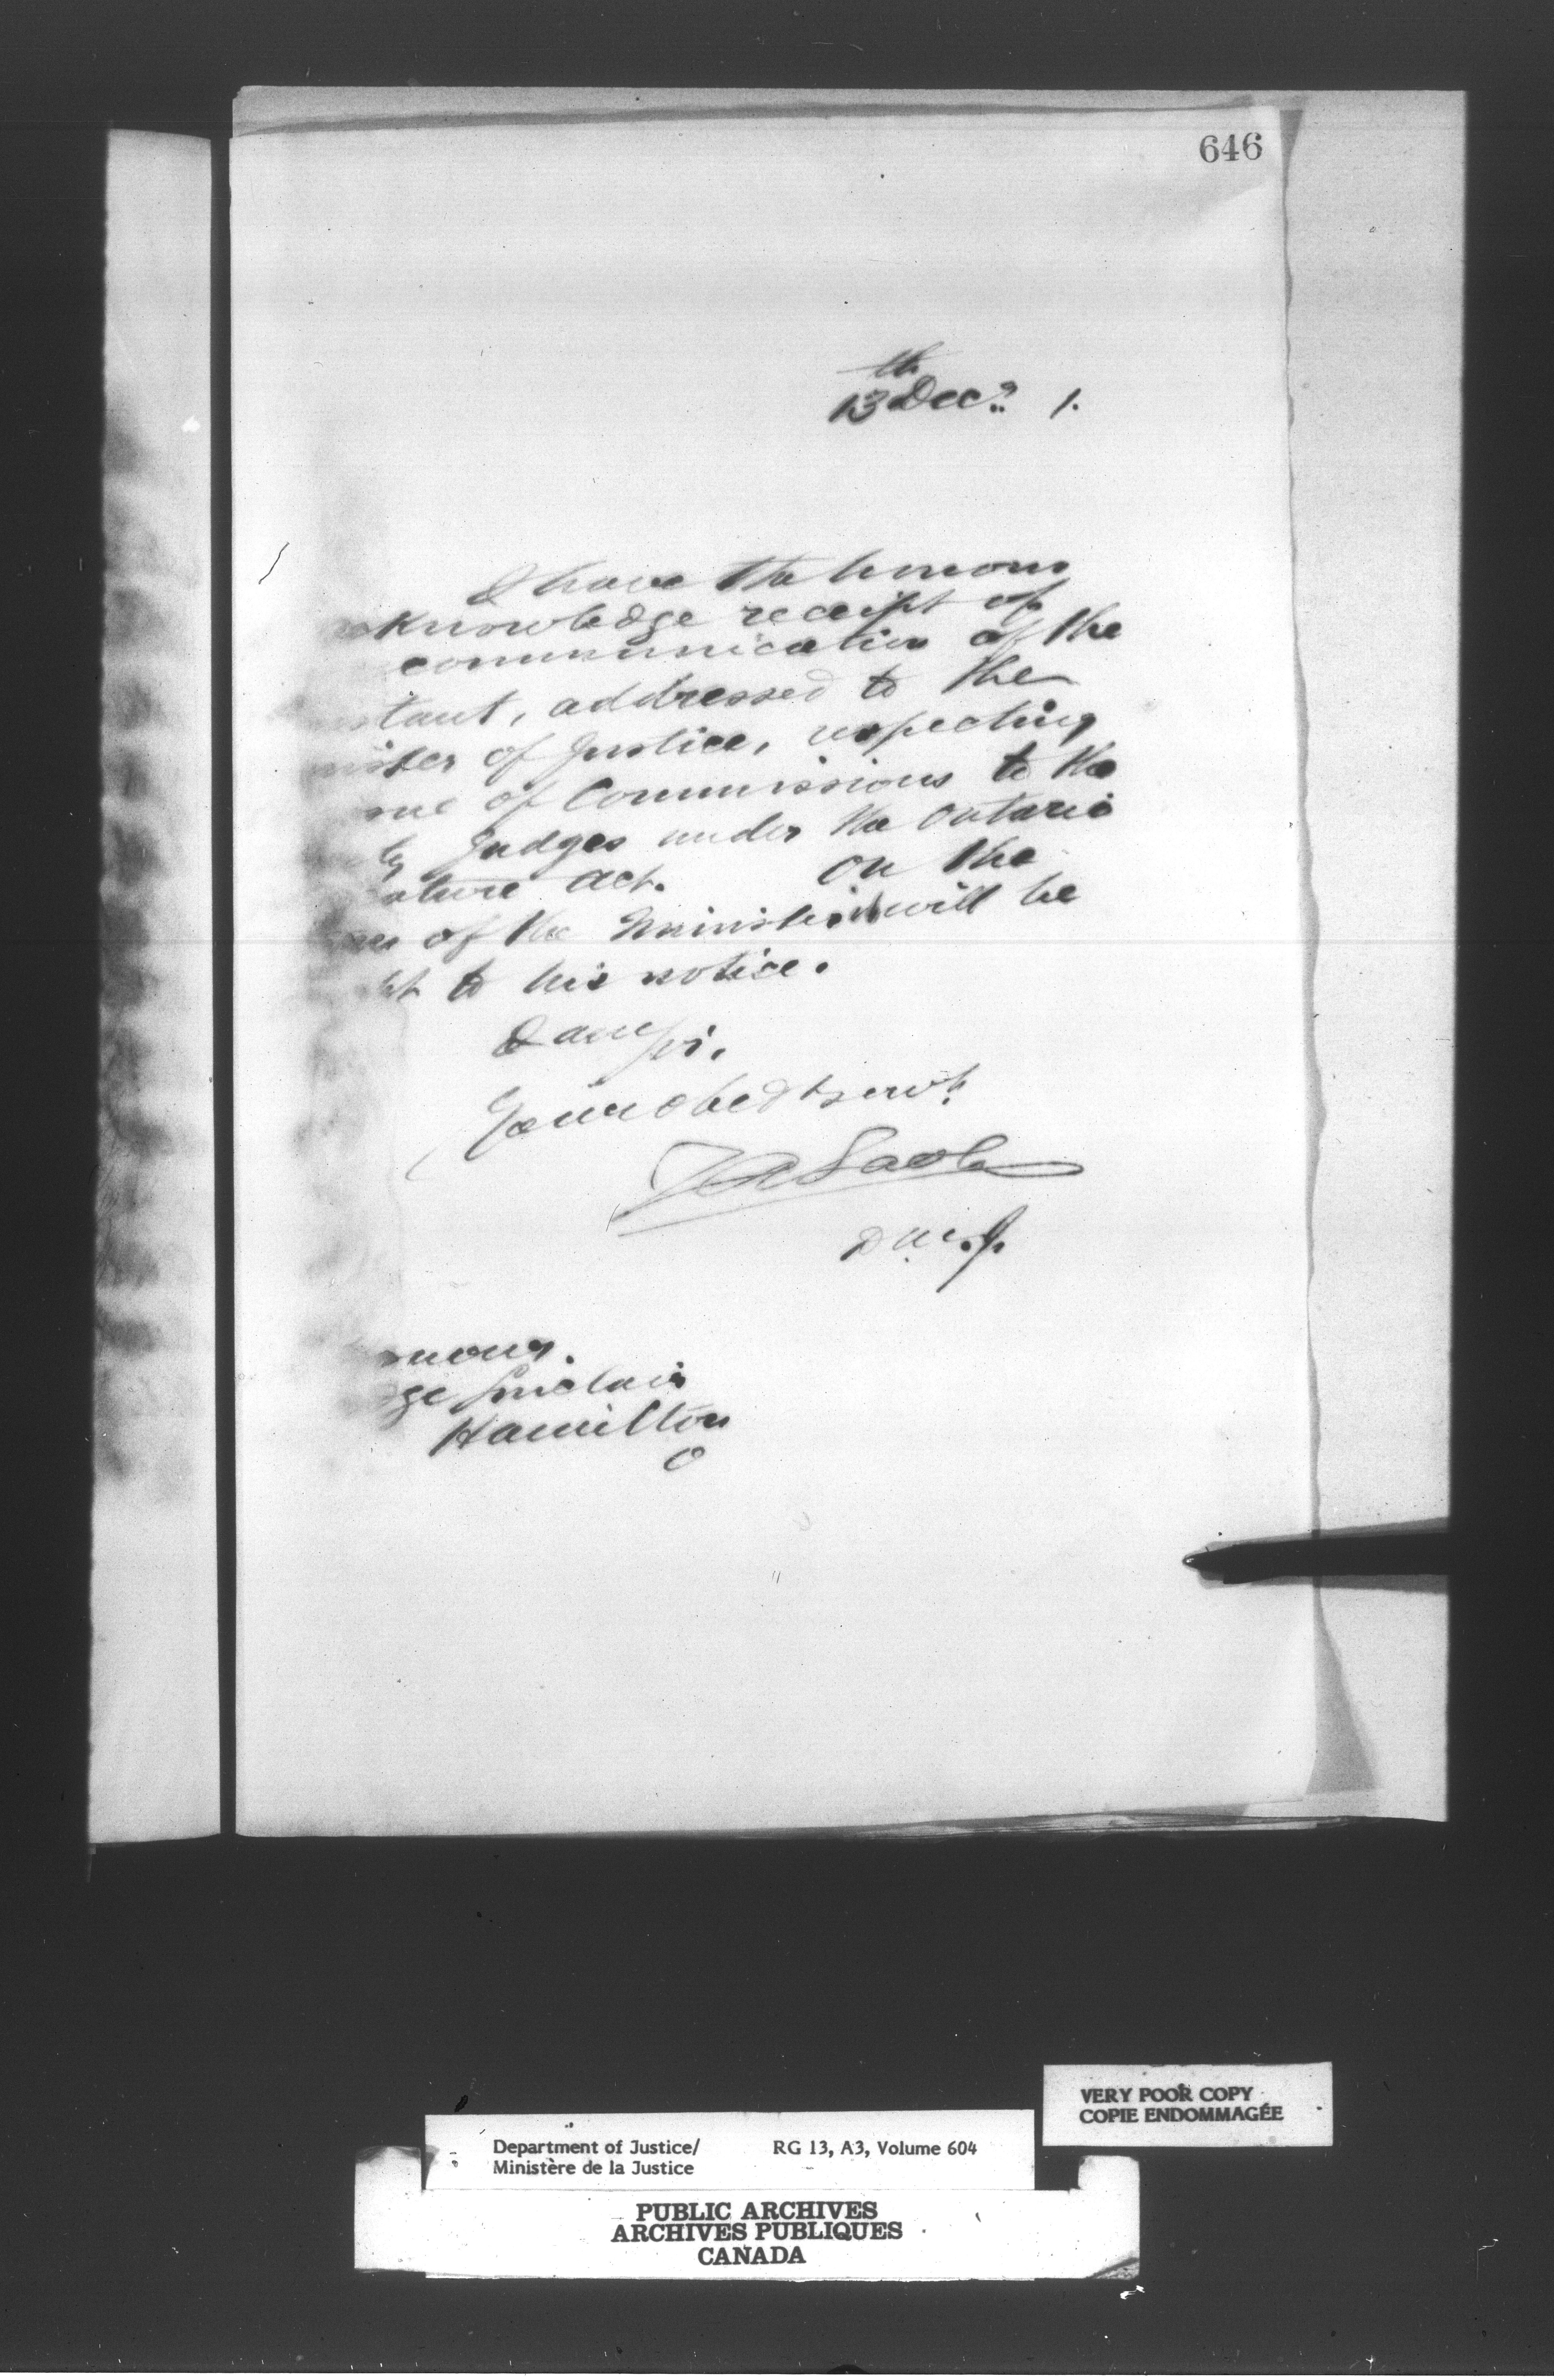 646
13th Decr. 1.
I have the honour
acknowledge receipt of
communication of the
stant, addressed to the
nister of Justice, respecting
sue of Commissions to the
ty Judges under the Ontario
ature Act. On the
of the Minister it will be
ht to his notice.
I am Sir,
Your obedt servt.
D.M.J.
onour.
ge Sinclair
Hamilton
O
VERY POOR COPY
COPIE ENDOMMAGÉE
Department of Justice/ RG 13, A3, Volume 604
Ministère de la Justice
PUBLIC ARCHIVES
ARCHIVES PUBLIQUES
CANADA